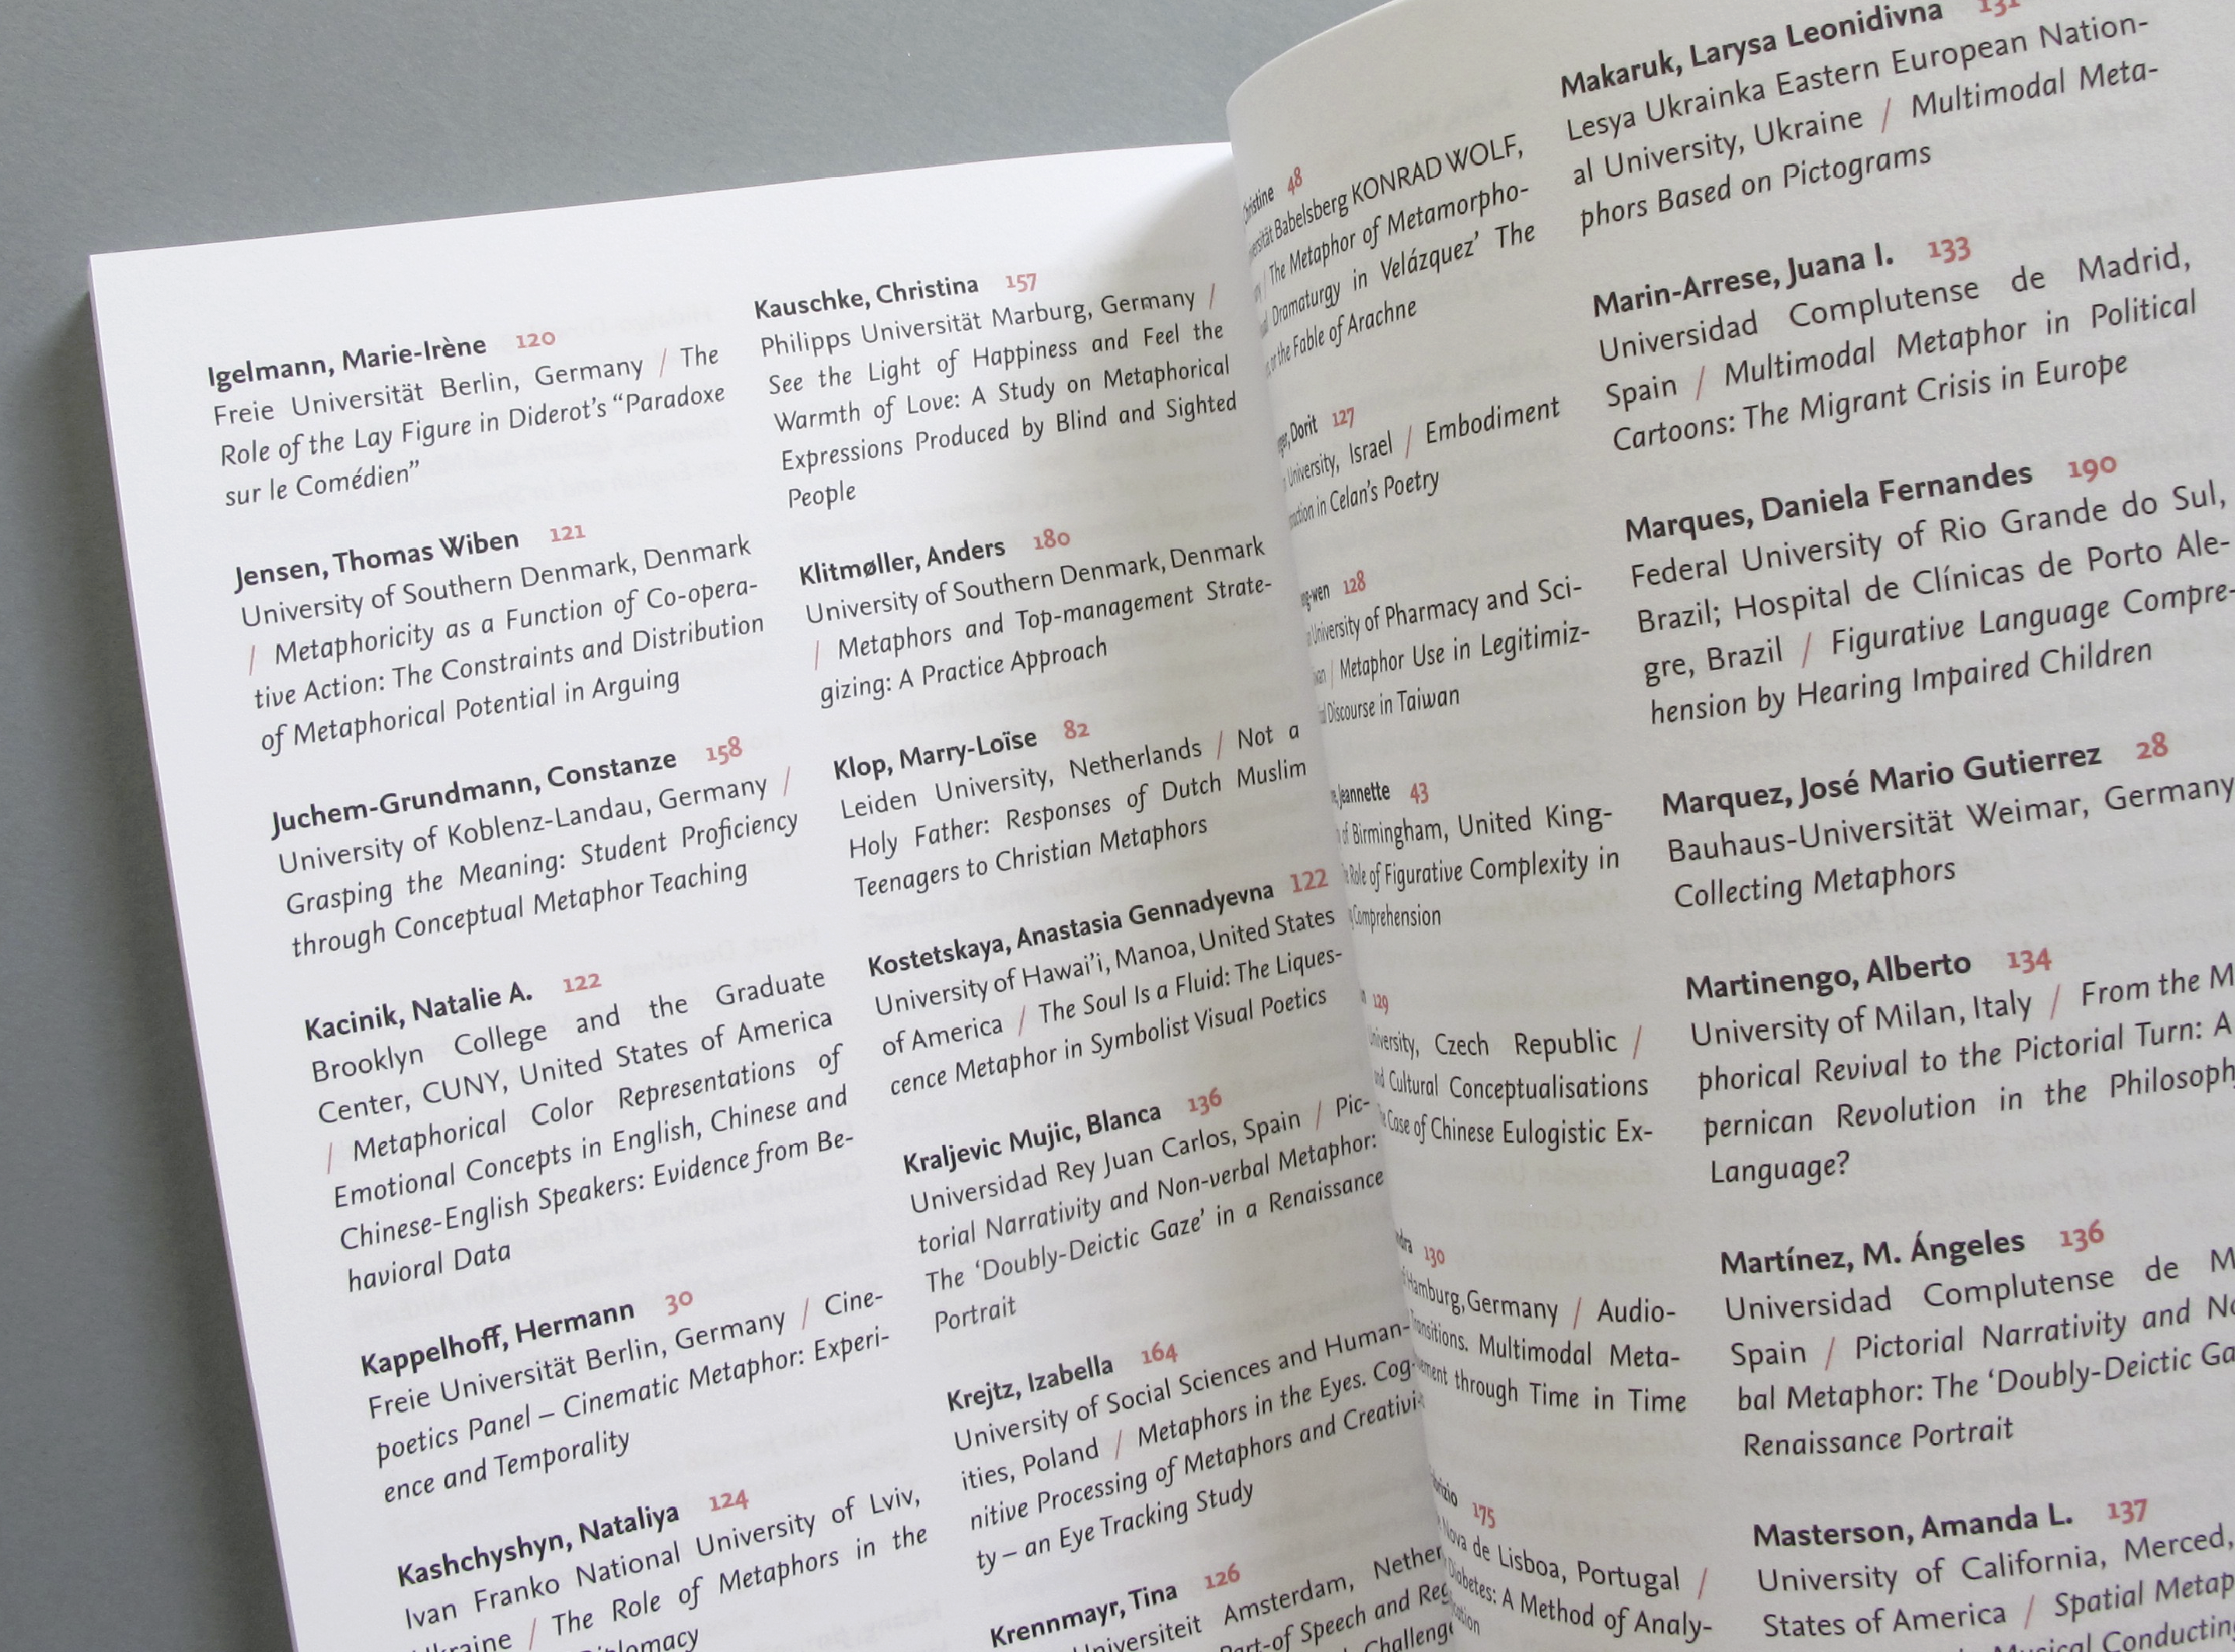 Igelmann, Marie-Irène 120
Freie Universität Berlin, Germany / The
Role of the Lay Figure in Diderot's “Paradoxe
sur le Comédien”
Jensen, Thomas Wiben 121
University of Southern Denmark, Denmark
/ Metaphoricity as a Function of Co-opera-
tive Action: The Constraints and Distribution
of Metaphorical Potential in Arguing
Juchem-Grundmann, Constanze 158
University of Koblenz-Landau, Germany /
Grasping the Meaning: Student Proficiency
through Conceptual Metaphor Teaching
Kacinik, Natalie A. 122
Brooklyn College and the Graduate
Center, CUNY, United States of America
/ Metaphorical Color Representations of
Emotional Concepts in English, Chinese and
Chinese-English Speakers: Evidence from Be-
havioral Data
Kappelhoff, Hermann 30
Freie Universität Berlin, Germany / Cine-
poetics Panel – Cinematic Metaphor: Experi-
ence and Temporality
Kashchyshyn, Nataliya 124
Ivan Franko National University of Lviv,
/ The Role of Metaphors in the
Kauschke, Christina 157
Philipps Universität Marburg, Germany /
See the Light of Happiness and Feel the
Warmth of Love: A Study on Metaphorical
Expressions Produced by Blind and Sighted
People
Klitmøller, Anders 180
University of Southern Denmark, Denmark
/ Metaphors and Top-management Strate-
gizing: A Practice Approach
Klop, Marry-Loïse 82
Leiden University, Netherlands / Not a
Holy Father: Responses of Dutch Muslim
Teenagers to Christian Metaphors
Kostetskaya, Anastasia Gennadyevna 122
University of Hawai'i, Manoa, United States
of America / The Soul Is a Fluid: The Liques-
cence Metaphor in Symbolist Visual Poetics
Kraljevic Mujic, Blanca 136
Universidad Rey Juan Carlos, Spain / Pic-
torial Narrativity and Non-verbal Metaphor:
The ‘Doubly-Deictic Gaze’ in a Renaissance
Portrait
Krejtz, Izabella 164
University of Social Sciences and Human-
ities, Poland / Metaphors in the Eyes. Cog-
nitive Processing of Metaphors and Creativi-
ty – an Eye Tracking Study
Krennmayr, Tina 126
Amsterdam,
of Speech and
48
Babelsberg KONRAD WOLF,
/ The Metaphor of Metamorpho-
Dramaturgy in Velázquez’ The
or the Fable of Arachne
Dorit 127
University, Israel / Embodiment
in Celan's Poetry
128
University of Pharmacy and Sci-
/ Metaphor Use in Legitimiz-
Discourse in Taiwan
Jeannette 43
of Birmingham, United King-
Role of Figurative Complexity in
Comprehension
129
University, Czech Republic /
Cultural Conceptualisations
Case of Chinese Eulogistic Ex-
130
Hamburg, Germany / Audio-
Multimodal Meta-
through Time in Time
175
Nova de Lisboa, Portugal /
Diabetes: A Method of Analy-
Makaruk, Larysa Leonidivna 131
Lesya Ukrainka Eastern European Nation-
al University, Ukraine / Multimodal Meta-
phors Based on Pictograms
Marin-Arrese, Juana I. 133
Universidad Complutense de Madrid,
Spain / Multimodal Metaphor in Political
Cartoons: The Migrant Crisis in Europe
Marques, Daniela Fernandes 190
Federal University of Rio Grande do Sul,
Brazil; Hospital de Clínicas de Porto Ale-
gre, Brazil / Figurative Language Compre-
hension by Hearing Impaired Children
Marquez, José Mario Gutierrez 28
Bauhaus-Universität Weimar, Germany
Collecting Metaphors
Martinengo, Alberto 134
University of Milan, Italy / From the M
phorical Revival to the Pictorial Turn: A
pernican Revolution in the Philosoph
Language?
Martínez, M. Ángeles 136
Universidad Complutense de M
Spain / Pictorial Narrativity and No
bal Metaphor: The ‘Doubly-Deictic Ga
Renaissance Portrait
Masterson, Amanda L. 137
University of California, Merced,
States of America / Spatial Metap
Conductin